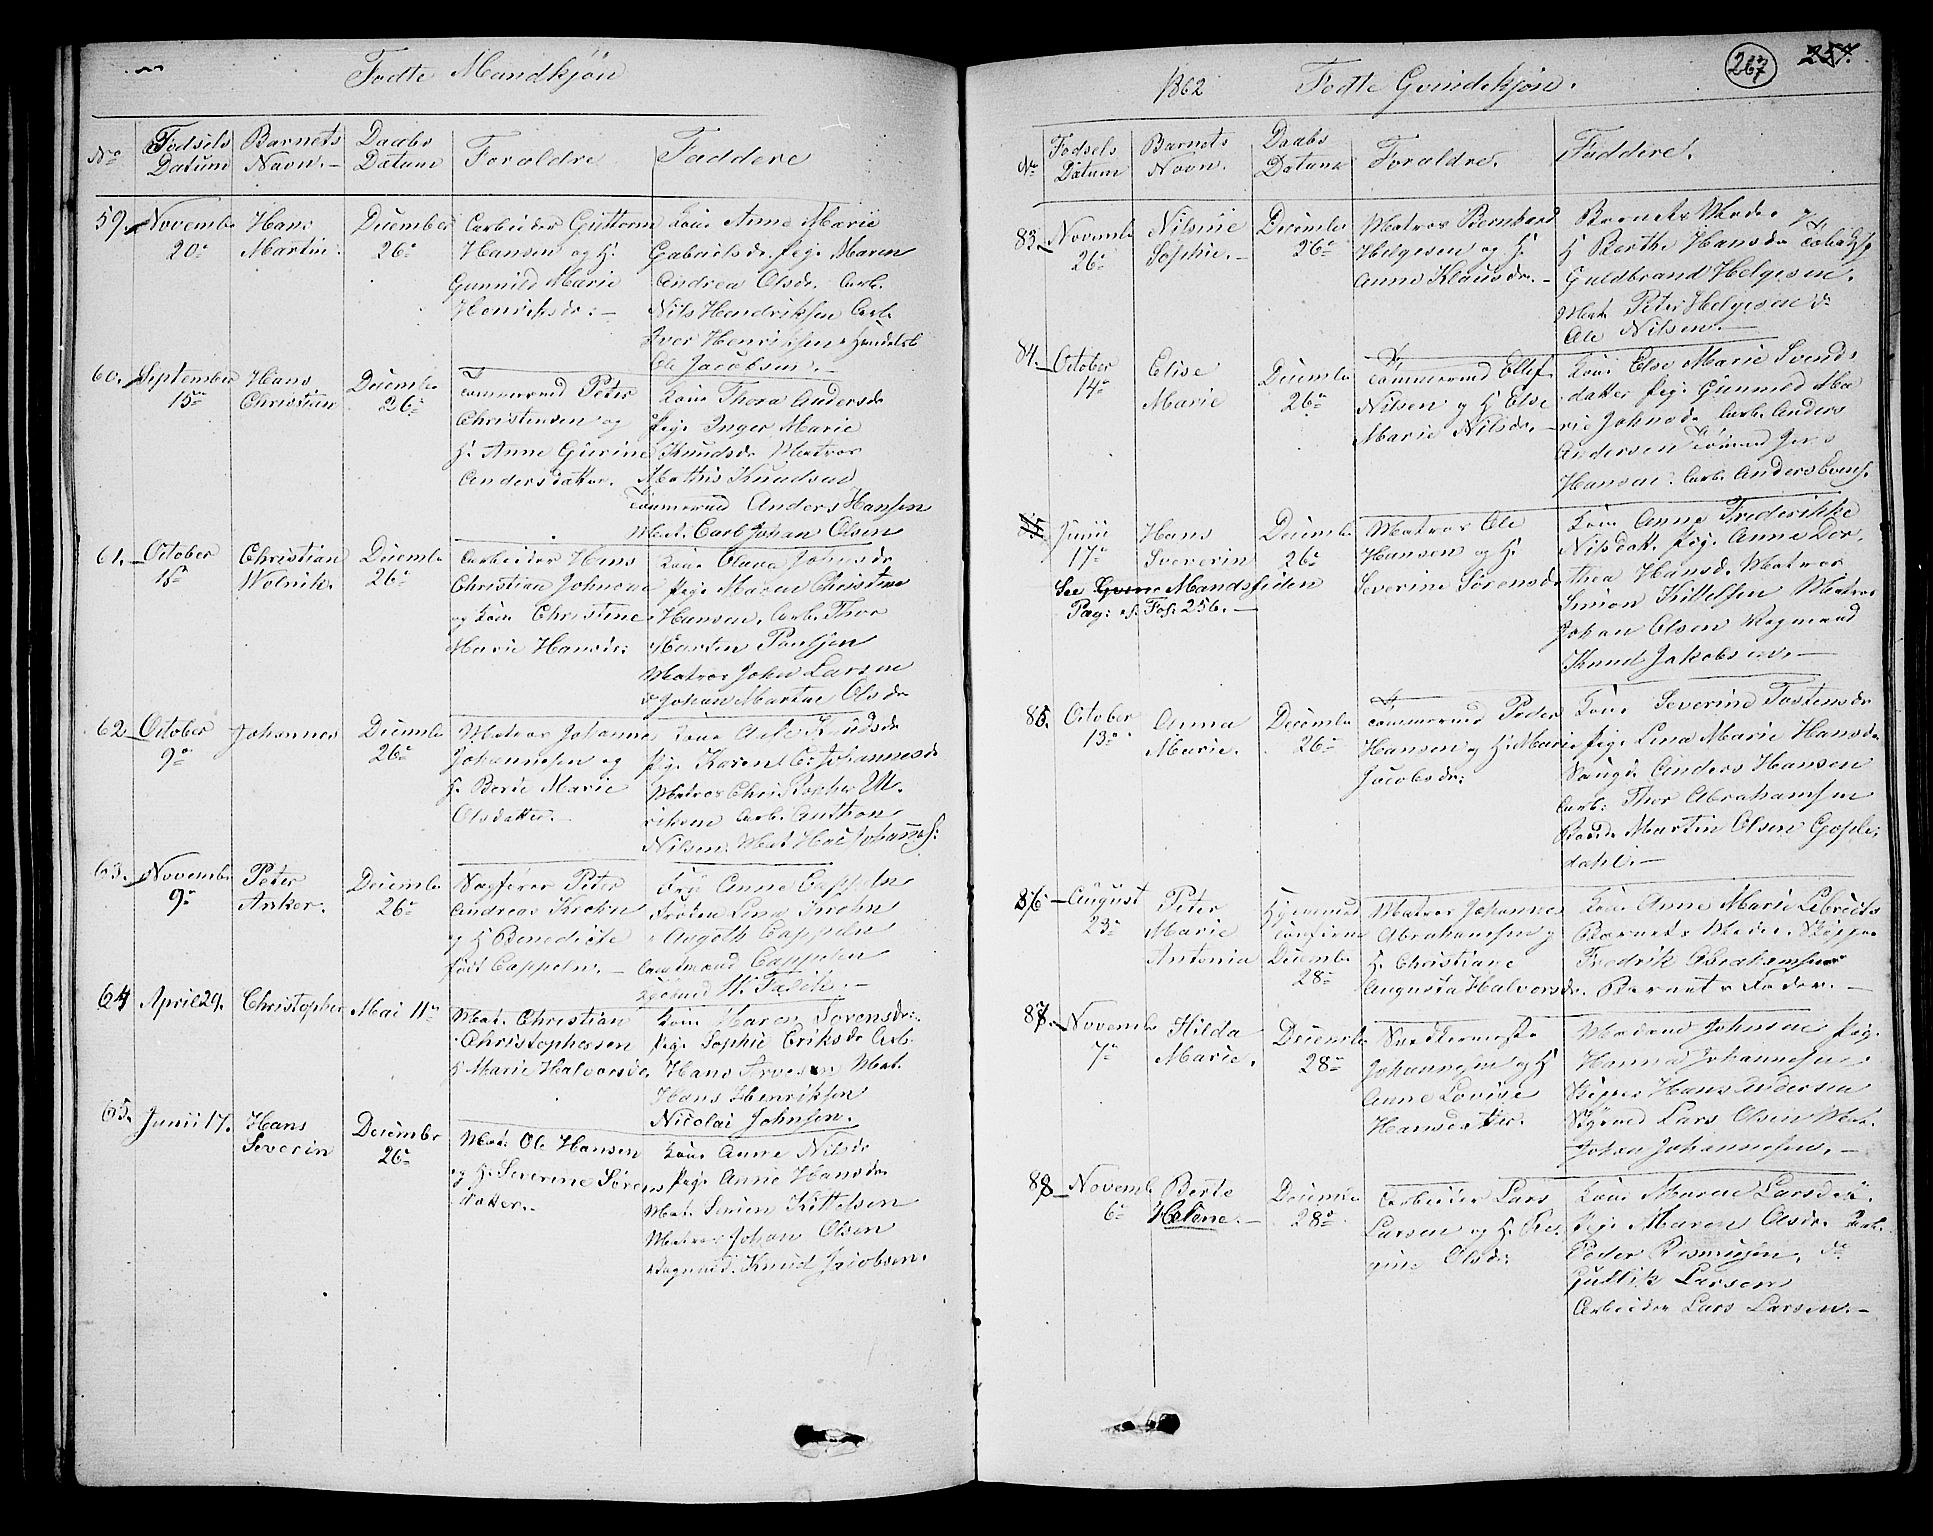 Fødte Mandkjøn
No Fødsels Datum Barnets Navn. Daabs Datum Foraldre Faddere
59. Novembr 20de Hans Martin. December 26de
Arbeider Guttorm
Hansen og H:
Gunnild Marie
Henriksdr. —
Kone Anne Marie
Gabrielsdr. Pige Maren
Andrea Olsdr. Arb.
Nils Hendriksen Arb.
Iver Henriksen Handelsb.
Ole Jacobsen. —
60. September 15de Hans Christian Decembr 26de
Tømmermd Peter
Christensen og
H. Anne Gurine
Andersdatter.
Kone Thora Andersdr
Pige Inger Marie
Knudsdr Matros
Mathis Knudsen
Tømmermd Anders Hansen
Mat. Carl Johan Olsen
61. October 15de Christian Wolnik. Decembr 26de
Arbeider Hans
Christian Johnsen
og Kone Christine
Marie Hansdr:
Kone Olava Johnsdr
Pige Maren Christine
Hansen, Arb. Thor
Martin Paulsen
Matros John Larsen
Johan Martin Olsdr
62. October 9de Johannes Decembr 26de
Matros Johannes
Johannesen og
H. Berte Marie
Olsdatter. —
Kone Knudsdr
Pige Karen C: Johannesdr
Matros
Arb. Anthon
Nilsen. Mat Johannes:
63. Novembr 9de Peter Anker. Decembr 26de
Sagfører Peter
Andreas Krohn
og H Benedicte
født Cappeln. —
Frue Anne Cappeln
Frøken Lina Krohn
Augoth Cappeln
Kaufmand Cappelen
H. Falck. —
64 April 29. Christopher Mai 11te
Mat. Christian
Christophersen
H Marie Halvorsdr.
Kone Maren Sørensdr.
Pige Sophie Eriksdr Arb.
Hans Arvesen Mat.
Hans Henriksen
Nicolai Johnsen.
65. Junii 17. Hans Severin Decembr 26de
Mat. Ole Hansen
og H. Severine Sørens
datter. —
Kone Anne Nilsdr
Pige Anne Hansdr
Mat. Simen Kittelsen
Matros Johan Olsen
Vognmd. Knud Jacobsen.
1862 Fødte Qvindekjøn.
267 257.
No Fødsels Datum Barnets Navn. Daabs Datum Foraldre. Faddere.
83. Novembr 26de Nilsine Sophie. — Decembr 26de
Matros Bernhard
Helgesen og H:
Anne Klausdr. —
Barnets Moder
H Berthe Hansdr
Guldbrand Helgesen.
Mat. Peter Helgesen do
Ole Nilsen. —
84. October 14de Elise Marie Decembr 26de
Tømmermd Ellef
Nilsen og H Else
Marie Nilsdr. —
Kone Else Marie Svends
datter Pige Gunnild Ma
rie Johnsdr Arb. Anders
Andersen Tømmermd Jens
Hansen. Arb. Anders Evens.
85 Junii 17de Hans Severin Decembr 26de
Matros Ole
Hansen og H.
Severine Sørensdr
Kone Anne Frederikke
Nilsdatt. Pige Anne Dor.
thea Hansdr. Matros
Simon Kittelsen Matros
Johan Olsen Vogmand
Knud Jakobsen. —
See Mandssiden
Pag: Fol: 256. —
85. October 13de Anna Marie. Decembr 26de
Tømmermd Peder
Hansen og H: Marie
Jacobsdr:
Kone Severine Tostensdr
Pige Lina Marie Hansdr
Anders Hansen
Arb: Thor Abrahamsen
Martin Olsen Gople:
dahl. —
86 — August 23de Peter Marie Antonia Hjemmed Confirm Decembr 28de
Matros Johannes
Abrahamsen og
H. Christiane
Augusta Halvorsdr.
Kone Anne Marie Librichts
Barnets Moder. Skipper
Fredrik Abrahamsen
Barnets Fader. —
87. Novembr 7de Hilda Marie. Decembr 28de
Snedkermester
Johannesen og H
Anne Lovise
Hansdatter.
Madame Johnsen Pige.
Hanna Johannesen
Skipper Hans Andersen
Lars Olsen Mat.
Johan Johannesen. —
88 Novemb 6te Berte Helene. — Decembr 28de
Arbeider Lars
Larsen og H. Re:
gine Olsdr:
Kone Maren Larsdr.
Pige Maren Olsdr. Arb.
Peder Rasmusen, do
Gullik Larsen
Arbeider Lars Larsen. —